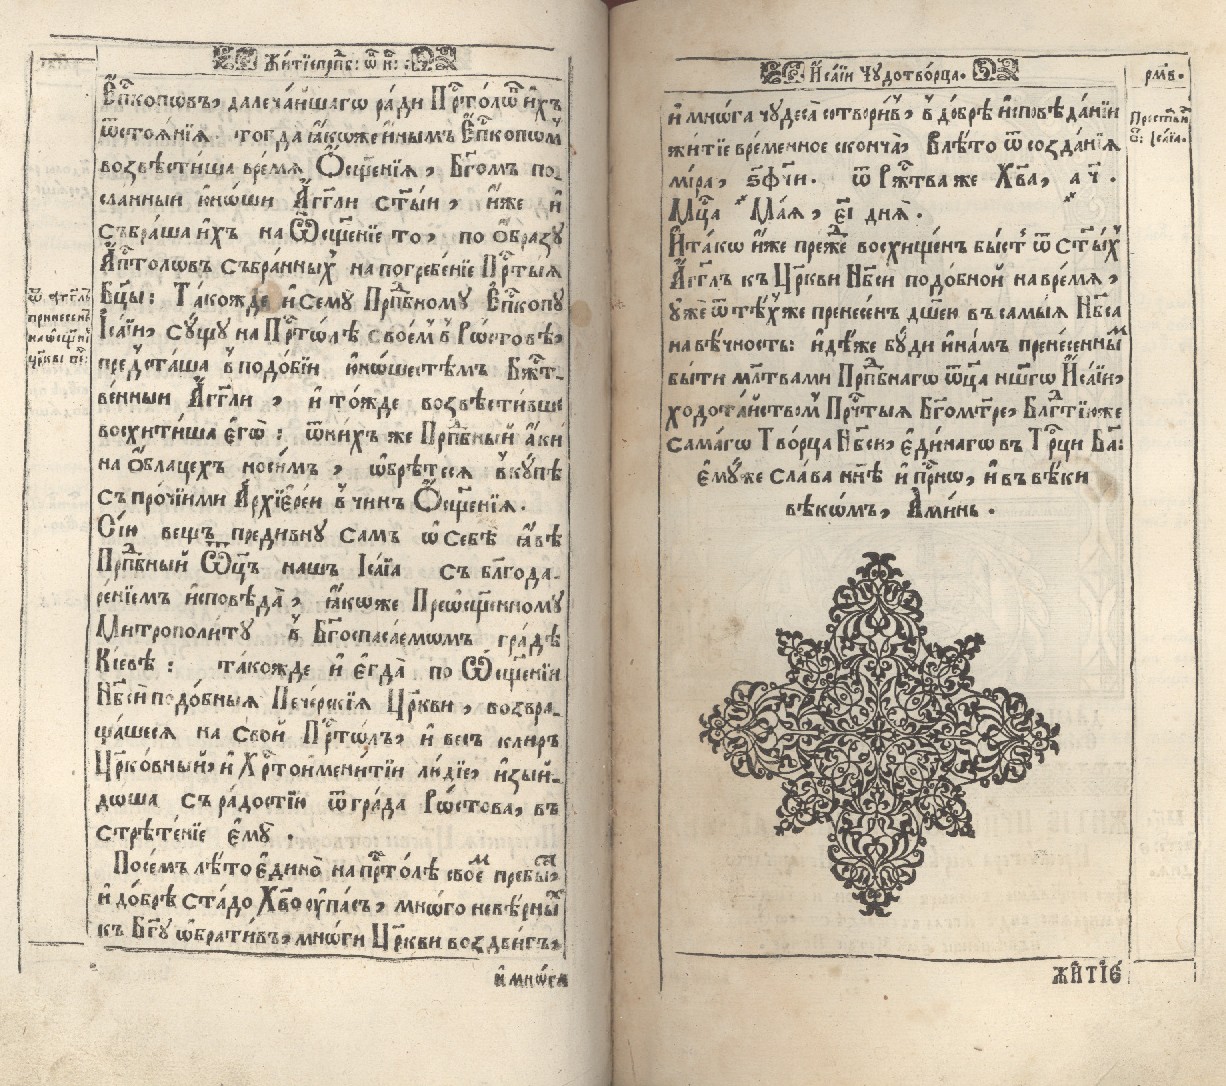 Житїе прпⷣб: ѿ н҃:
Е҆пⷭ҇копѡвъ, далеча́йшагѡ ра́ди Прⷭ҇то́лѡⷡ҇ и҆́хъ
ѿстоѧ́нїѧ. тогда ꙗ҆́коже и҆ны́мъ Е҆пⷭ҇копѡⷨ
возвѣсти́ша вре́мѧ Ѻ҆сщ҃е́нїѧ, Бг҃омъ по-
сланныи ю҆́нѡши А҆́гг҃ли ст҃ы́и, и҆́же и҆
събра́ша и҆́хъ на Ѡ҆сщ҃е́нїе то, по ѻ҆́бразу
А҆пⷭ҇толѡвъ събра́нныⷯ на погребе́нїе Прⷭ҇тыѧ
Бц҃ы: Та́кожде и҆ семꙋ̀ Прпⷣбному Е҆пⷭ҇копу
І҆са́їи, сꙋ́щу на Прⷭ҇то́лѣ свое́мⸯ в Рѡ́стовѣ,
предⸯста́ша вⸯ подо́бїи ю҆́нѡшестѣмъ Бжⷭ҇т-
ве́нныи А҆́гг҃ли, и҆ то́жде возвѣсти́вше
восхити́ша е҆го̀: ѿ ни́хъ же Прпⷣбный а҆́ки
на ѻ҆́блацехъ носи́мъ, ѡ҆брѣ́тесѧ вⸯкупѣ
съ про́чїими А҆рхїере́и вⸯ чинъ Ѻ҆сщ҃е́нїѧ.
Сїю̀ вещъ предивну самъ ѡ҆ себѣ̀ ꙗ҆́вѣ
Прпⷣбный Ѿц҃ъ нашъ І҆са́їа съ бл҃года-
ре́нїемъ и҆сповѣ́да, ꙗ҆́коже Преѡ҆сщ҃е́нному
Митрополи́ту вⸯ Бг҃оспаса́емомъ гра́дѣ
Кі́евѣ: та́кожде и҆ е҆гда̀ по Ѡ҆сщ҃е́нїи
Нб҃си подо́бныѧ Пече́рскїѧ Цр҃кви, возвра-
ща́шесѧ на сво́й Прⷭ҇то́лъ, и҆ весь клиръ
Цр҃ко́вный, и҆ Хрⷭ҇тоимени́тїи лю́дїе, и҆зый-
до́ша съ ра́достїю ѿ гра́да Рѡ́стова, въ
стрѣ́тенїе е҆мꙋ̀.
Посе́мъ лѣ́то є҆ди́но на прⷭ҇то́лѣ своеⷨ пребыⷭ,
и҆ до́брѣ ста́до Хв҃о ѹ҆па́съ, мнѡ́го невѣ́рныⷯ
къ Бг҃у ѡ҆брати́въ, мнѡ́ги Цр҃кви воздви́гъ,
и҆ мнѡ́га
И҆са́їи Чꙋдотво́рца.
рм҃в.
и҆ мнѡ́га чудеса̀ сотвори́вⸯ, вⸯ до́брѣ и҆сповѣ́данїи
житїѐ вре́менное сконча̀, В лѣ́то ѿ созда́нїѧ
мі́ра, ҂ѕ҃ф҃ч҃и. ѿ Ржⷭ҇тва же Хв҃а, ҂а҃ ч҃.
Мцⷭ҇а Ма́ѧ, є҃і днѧ̀.
И҆ та́кѡ и҆́же пре́жⷣе восхище́нъ быстⸯ ѿ ст҃ы́ⷯ
А҆́гг҃лъ къ Цр҃кви Нб҃си подо́бной на вре́мѧ,
ужѐ ѿ тѣ́ⷯже пренесе́нъ дш҃ею въ самы́ѧ Нб҃са
на вѣ́чность: и҆дѣ́же бу́ди и҆ на́мъ пренесе́нныⷨ
бы́ти мл҃твами Прпⷣбнагѡ ѿц҃а нш҃гѡ И҆са́їи,
ходота́йствомⸯ Прⷭ҇тыѧ Бг҃омт҃ре, Блгⷣтїю же
самагѡ Тво́рца Нб҃си, е҆ди́нагѡ въ Трⷪ҇ци Бг҃а:
є҆мꙋ́же сла́ва нн҃ѣ и҆ прⷭ҇нѡ, и҆ въ вѣ́ки
вѣкѡ́мъ, А҆ми́нь.
ЖИ́ТЇЕ